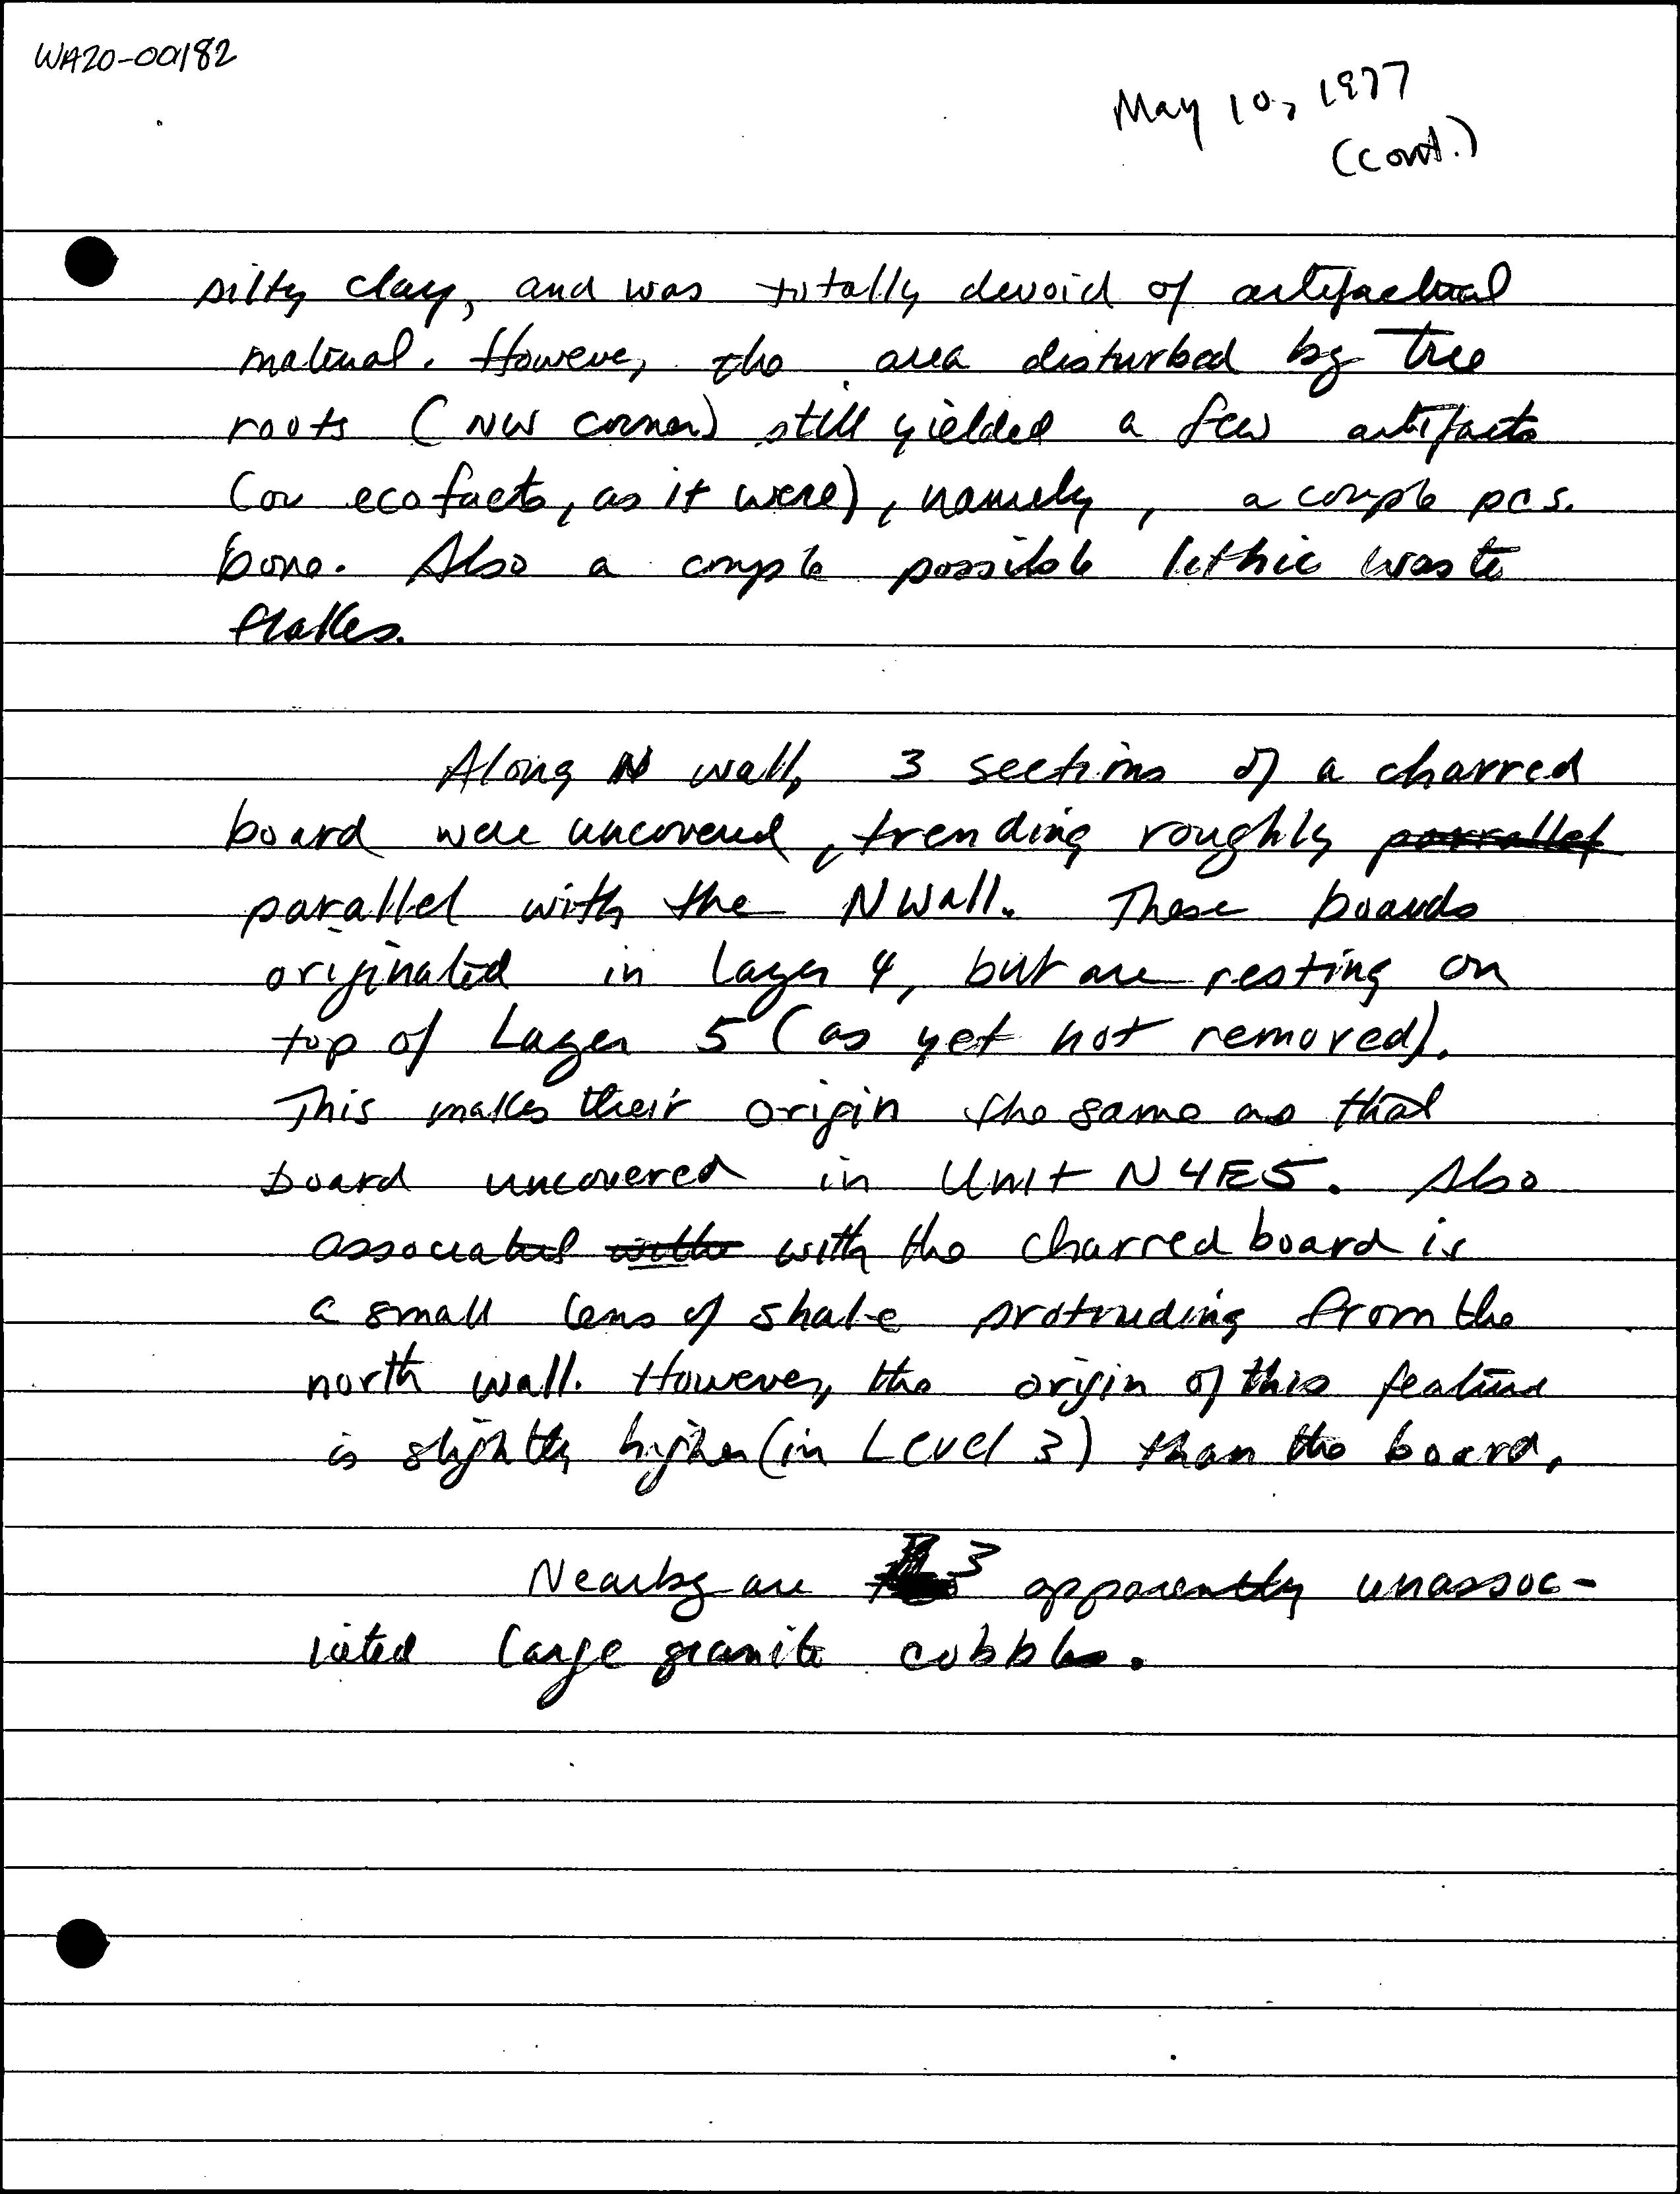 WA20-00182
May 10, 1977
(cont.)
silty clay, and was totally devoid of artifactual
material. However, the area disturbed by tree
roots (NW corner) still yielded a few artifacts
(or ecofacts, as it were), namely, a couple pcs.
bone. Also a couple possible lithic waste
flakes.
Along N wall, 3 sections of a charred
board were uncovered, trending roughly parrallel
parallel with the N Wall. These boards
originated in Layer 4, but are resting on
top of Layer 5 (as yet not removed).
This makes their origin the same as that
board uncovered in Unit N4E5. Also
associated with with the charred board is
a small lens of shale protruding from the
north wall. However, the origin of this feature
is slightly higher (in Level 3) than the board.
Nearby are 3 apparently unassoc-
iated large granite cobbles.